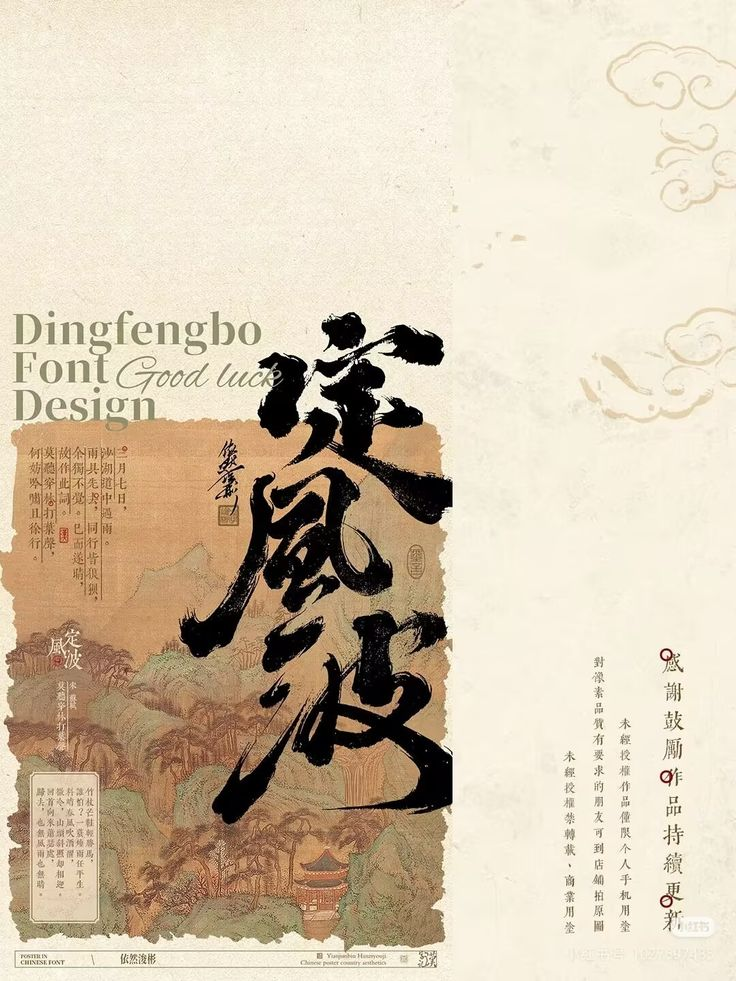 Dingfengbo
Font
Good luck
Design
定風波
三月七日，
沙湖道中遇雨。
雨具先去，同行皆狼狽，
余獨不覺。已而遂晴，
故作此詞。
莫聽穿林打葉聲，
何妨吟嘯且徐行。
定風波
宋
莫聽穿林打葉聲
竹杖芒鞋輕勝馬，
誰怕？一蓑煙雨任平生。
料峭春風吹酒醒，
微冷，山頭斜照卻相迎。
回首向來蕭瑟處，
歸去，也無風雨也無晴。
POSTER IN
CHINESE FONT
\
依然浚彬
Yianjunbin Hunnyouji
Chinese poster country aesthetics
感謝鼓勵作品持續更新
未經授權作品僅限个人手机用塗
對像素品質有要求的朋友可到店鋪拍原圖
未經授權禁轉载、商業用塗
小红书